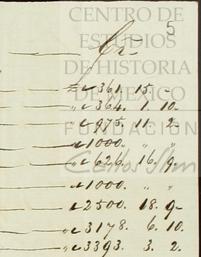 CENTRO DE
ESTUDIOS
DE HISTORIA
DE MÉXICO
FUNDACIÓN
Carlos Slim
5
Cr
361. 15. -
„ 364. 1. 10.
„ 975. 11. 2.
„ 1000. „ „
„ 626. 16. 9.
„ 1000. „ „
„ 2500. 18. 9.
„ 3178. 6. 10.
„ 3393. 3. 2.